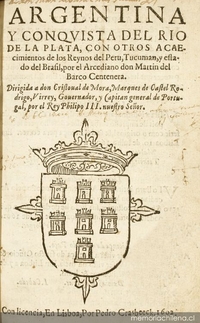 ARGENTINA
Y CONQVISTA DEL RIO
DE LA PLATA, CON OTROS ACAE-
cimientos de los Reynos del Peru, Tucuman, y esta
do del Brasil, por el Arcediano don Martin del
Barco Centenera.
Dirigida a don Cristoual de Mora, Marques de Castel Ro-
drigo, Virrey, Gouernador, y Capitan general de Portu-
gal, por el Rey Philipo III. nuestro Señor.
Con licencia, En Lisboa, Por Pedro Crasbeeck. 1602.
www.memoriachilena.cl